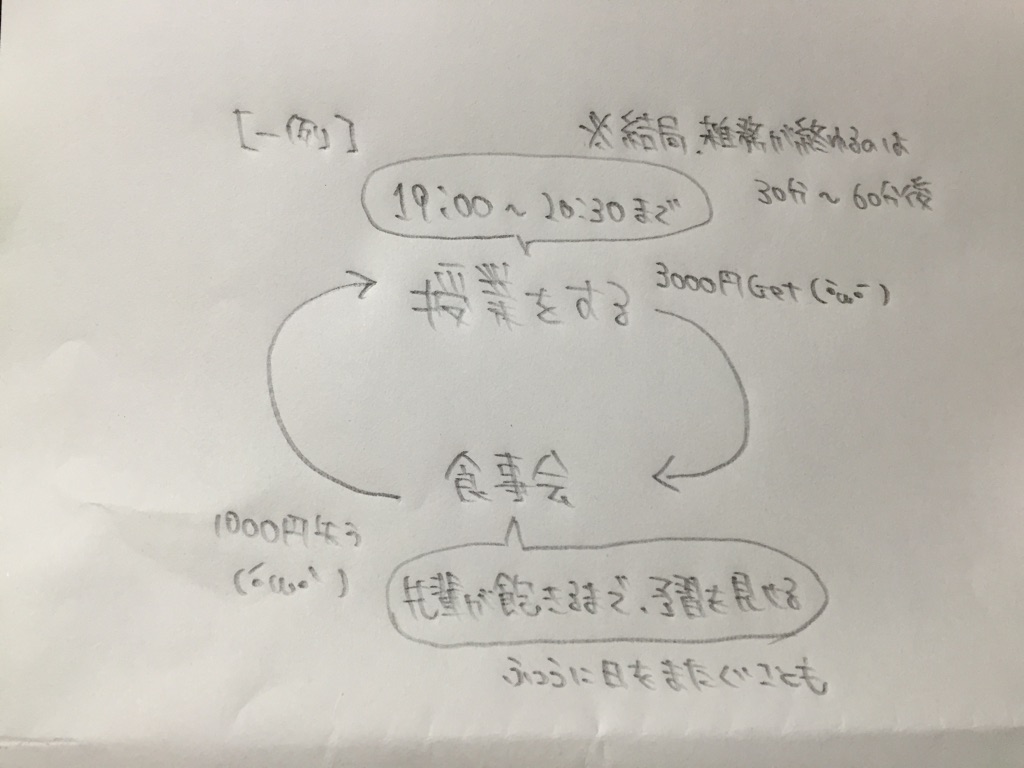 [一例]
※結局、雑務が終わるのは
30分～60分後
19:00～20:30まで
授業をする
3000円Get(・ω・)
食事会
1000円失う
(´・ω・`)
先輩が飽きるまで、予習を見せる
ふつうに日をまたぐことも